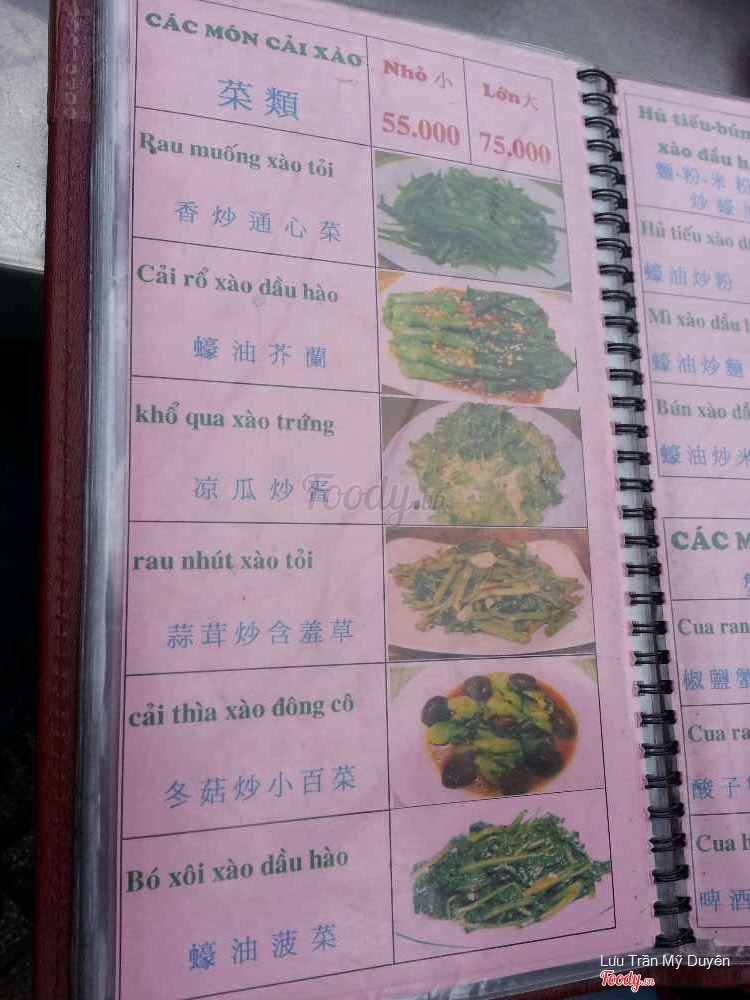 CÁC MÓN CẢI XÀO
菜類
Nhỏ 小
55.000
Lớn 大
75.000
Rau muống xào tỏi
香炒通心菜
Cải rổ xào dầu hào
蠔油芥蘭
khổ qua xào trứng
凉瓜炒蛋
rau nhút xào tỏi
蒜茸炒含羞草
cải thìa xào đông cô
冬菇炒小百菜
Bó xôi xào dầu hào
蠔油菠菜
Hủ tiếu-bún
xào dầu h
麵-粉-米粉
炒蠔
Hủ tiếu xào d
蠔油炒粉
Mì xào dầu h
蠔油炒麵
Bún xào dầ
蠔油炒米
CÁC M
Cua ran
椒鹽
Cua ra
酸子
Cua h
啤酒
Foody.vn
Lưu Trần Mỹ Duyên
Foody.vn